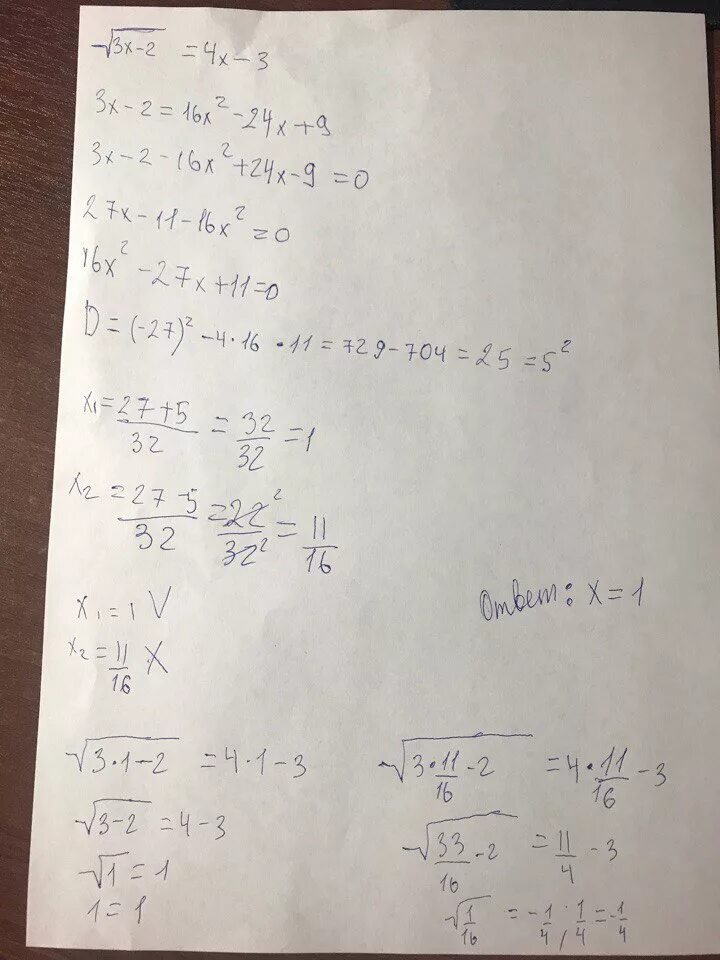 √(3x-2) = 4x-3
3x-2 = 16x² - 24x + 9
3x-2-16x²+24x-9 = 0
27x-11-16x² = 0
16x² - 27x + 11 = 0
D = (-27)² - 4·16·11 = 729-704 = 25 = 5²
x₁ = (27+5)/32 = 32/32 = 1
x₂ = (27-5)/32 = 22/32 = 11/16
x₁ = 1 V
x₂ = 11/16 X
Ответ: x = 1
√(3·1-2) = 4·1-3
√(3-2) = 4-3
√1 = 1
1 = 1
√(3·11/16-2) = 4·11/16-3
√(33/16-2) = 11/4-3
√(1/16) = -1/4, 1/4 = -1/4